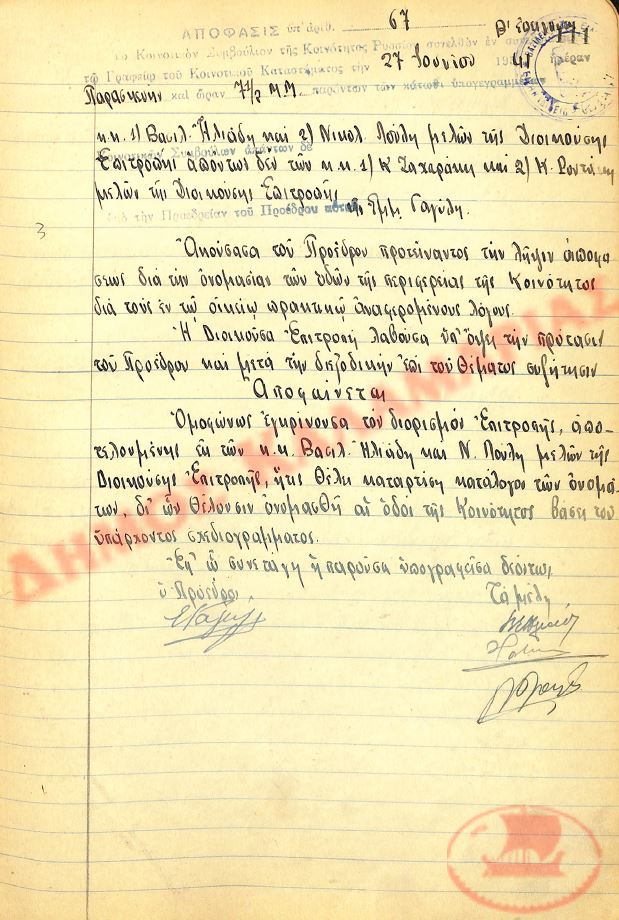 ΑΠΟΦΑΣΙΣ ὑπ' ἀριθ. 67
Τὸ Κοινοτικὸν Συμβούλιον τῆς Κοινότητος συνελθὸν ἐν
τῷ Γραφείῳ τοῦ Κοινοτικοῦ Καταστήματος τὴν 27 Ἰουνίου 1941 ἡμέραν
Παρασκευὴν καὶ ὥραν 7 1/2 Μ.Μ. παρόντων τῶν κάτωθι ὑπογεγραμμένων
κ.κ. 1) Βασιλ. Ἠλιάδη καὶ 2) Νικολ. Πούλη μελῶν τῆς Διοικούσης
Κοινοτικῶν Συμβούλων ἀπάντων δὲ
Ἐπιτροπῆς ἀπόντων δὲν τῶν κ.κ. 1) Κ Ζαχαράκη καὶ 2) Κ.
μελῶν τῆς Διοικούσης Ἐπιτροπῆς
ὑπὸ τὴν Προεδρείαν τοῦ Προέδρου αὐτῆς Ἐμμ. Γαγύλη.
3
Ἀκούσασα τοῦ Προέδρου προτείναντος τὴν λῆψιν ἀποφά
σεως διὰ τὴν ὀνομασίαν τῶν ὁδῶν τῆς περιφερείας τῆς Κοινότητος
διὰ τοὺς ἐν τῷ οἰκείῳ πρακτικῷ ἀναφερομένους λόγους.
Ἡ Διοικοῦσα Ἐπιτροπὴ λαβοῦσα ὑπ' ὄψει τὴν πρότασιν
τοῦ Προέδρου καὶ μετὰ τὴν διεξοδικὴν ἐπὶ τοῦ θέματος συζήτησιν
Ἀποφαίνεται
Ὁμοφώνως ἐγκρίνουσα τὸν διορισμὸν Ἐπιτροπῆς, ἀπο-
τελουμένης ἐκ τῶν κ.κ. Βασιλ. Ἠλιάδη καὶ Ν. Πούλη μελῶν τῆς
Διοικούσης Ἐπιτροπῆς, ἥτις θέλει καταρτίση κατάλογον τῶν ὀνομά
των, δι' ὧν θέλουσιν ὀνομασθῆ αἱ ὁδοὶ τῆς Κοινότητος βάσει τοῦ
ὑπάρχοντος σχεδιογράμματος.
Ἐφ' ᾧ συνετάγη ἡ παροῦσα ὑπογραφεῖσα δεόντως
ὁ Πρόεδρος Τὰ μέλη
ΔΗΜΟΣ ΚΑΛΑΜΑΡΙΑΣ